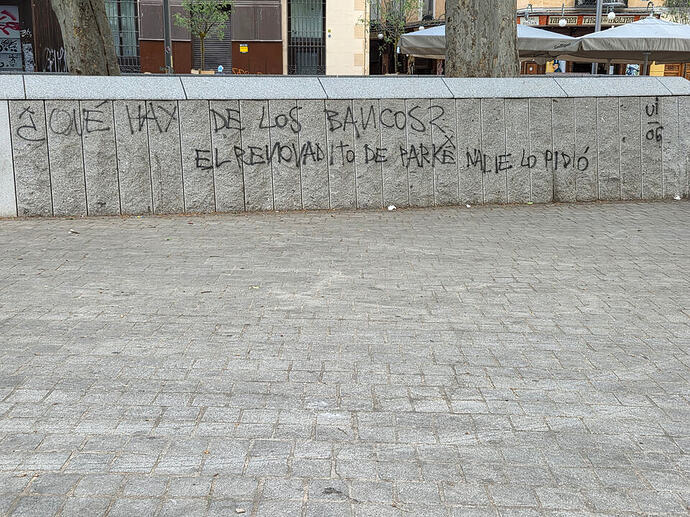 ¿QUÉ HAY DE LOS BANCOS?
EL RENOVADITO DE PARKE NADIE LO PIDIÓ